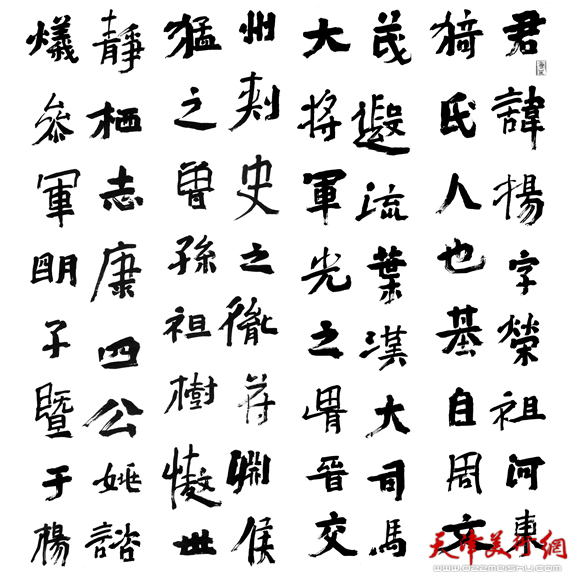 君諱揚字榮祖河東
猗氏人也基自周文
茂遐流葉漢大司馬
大將軍光之胄晉交
州刾史之胤苻侯
猛之曽孫祖樹慠世
靜栖志康四公姚諮
燨叅軍朙子暨于楊
天津美術網
www.022meishu.com